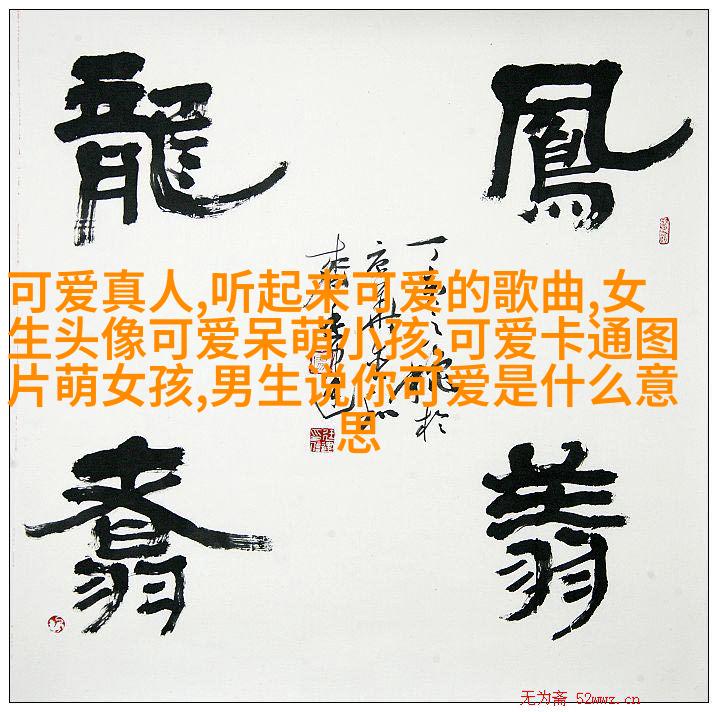 龍
鳳
可爱真人,听起来可爱的歌曲,女
生头像可爱呆萌小孩,可爱卡通图
片萌女孩,男生说你可爱是什么意
思
翥
翔
无为斋 52wwz.cn